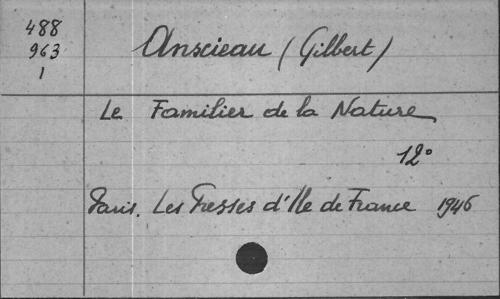 488
963
1
Anscieau (Gilbert)
Le Familier de la Nature
12°
Paris. Les Presses d'Ile de France 1946